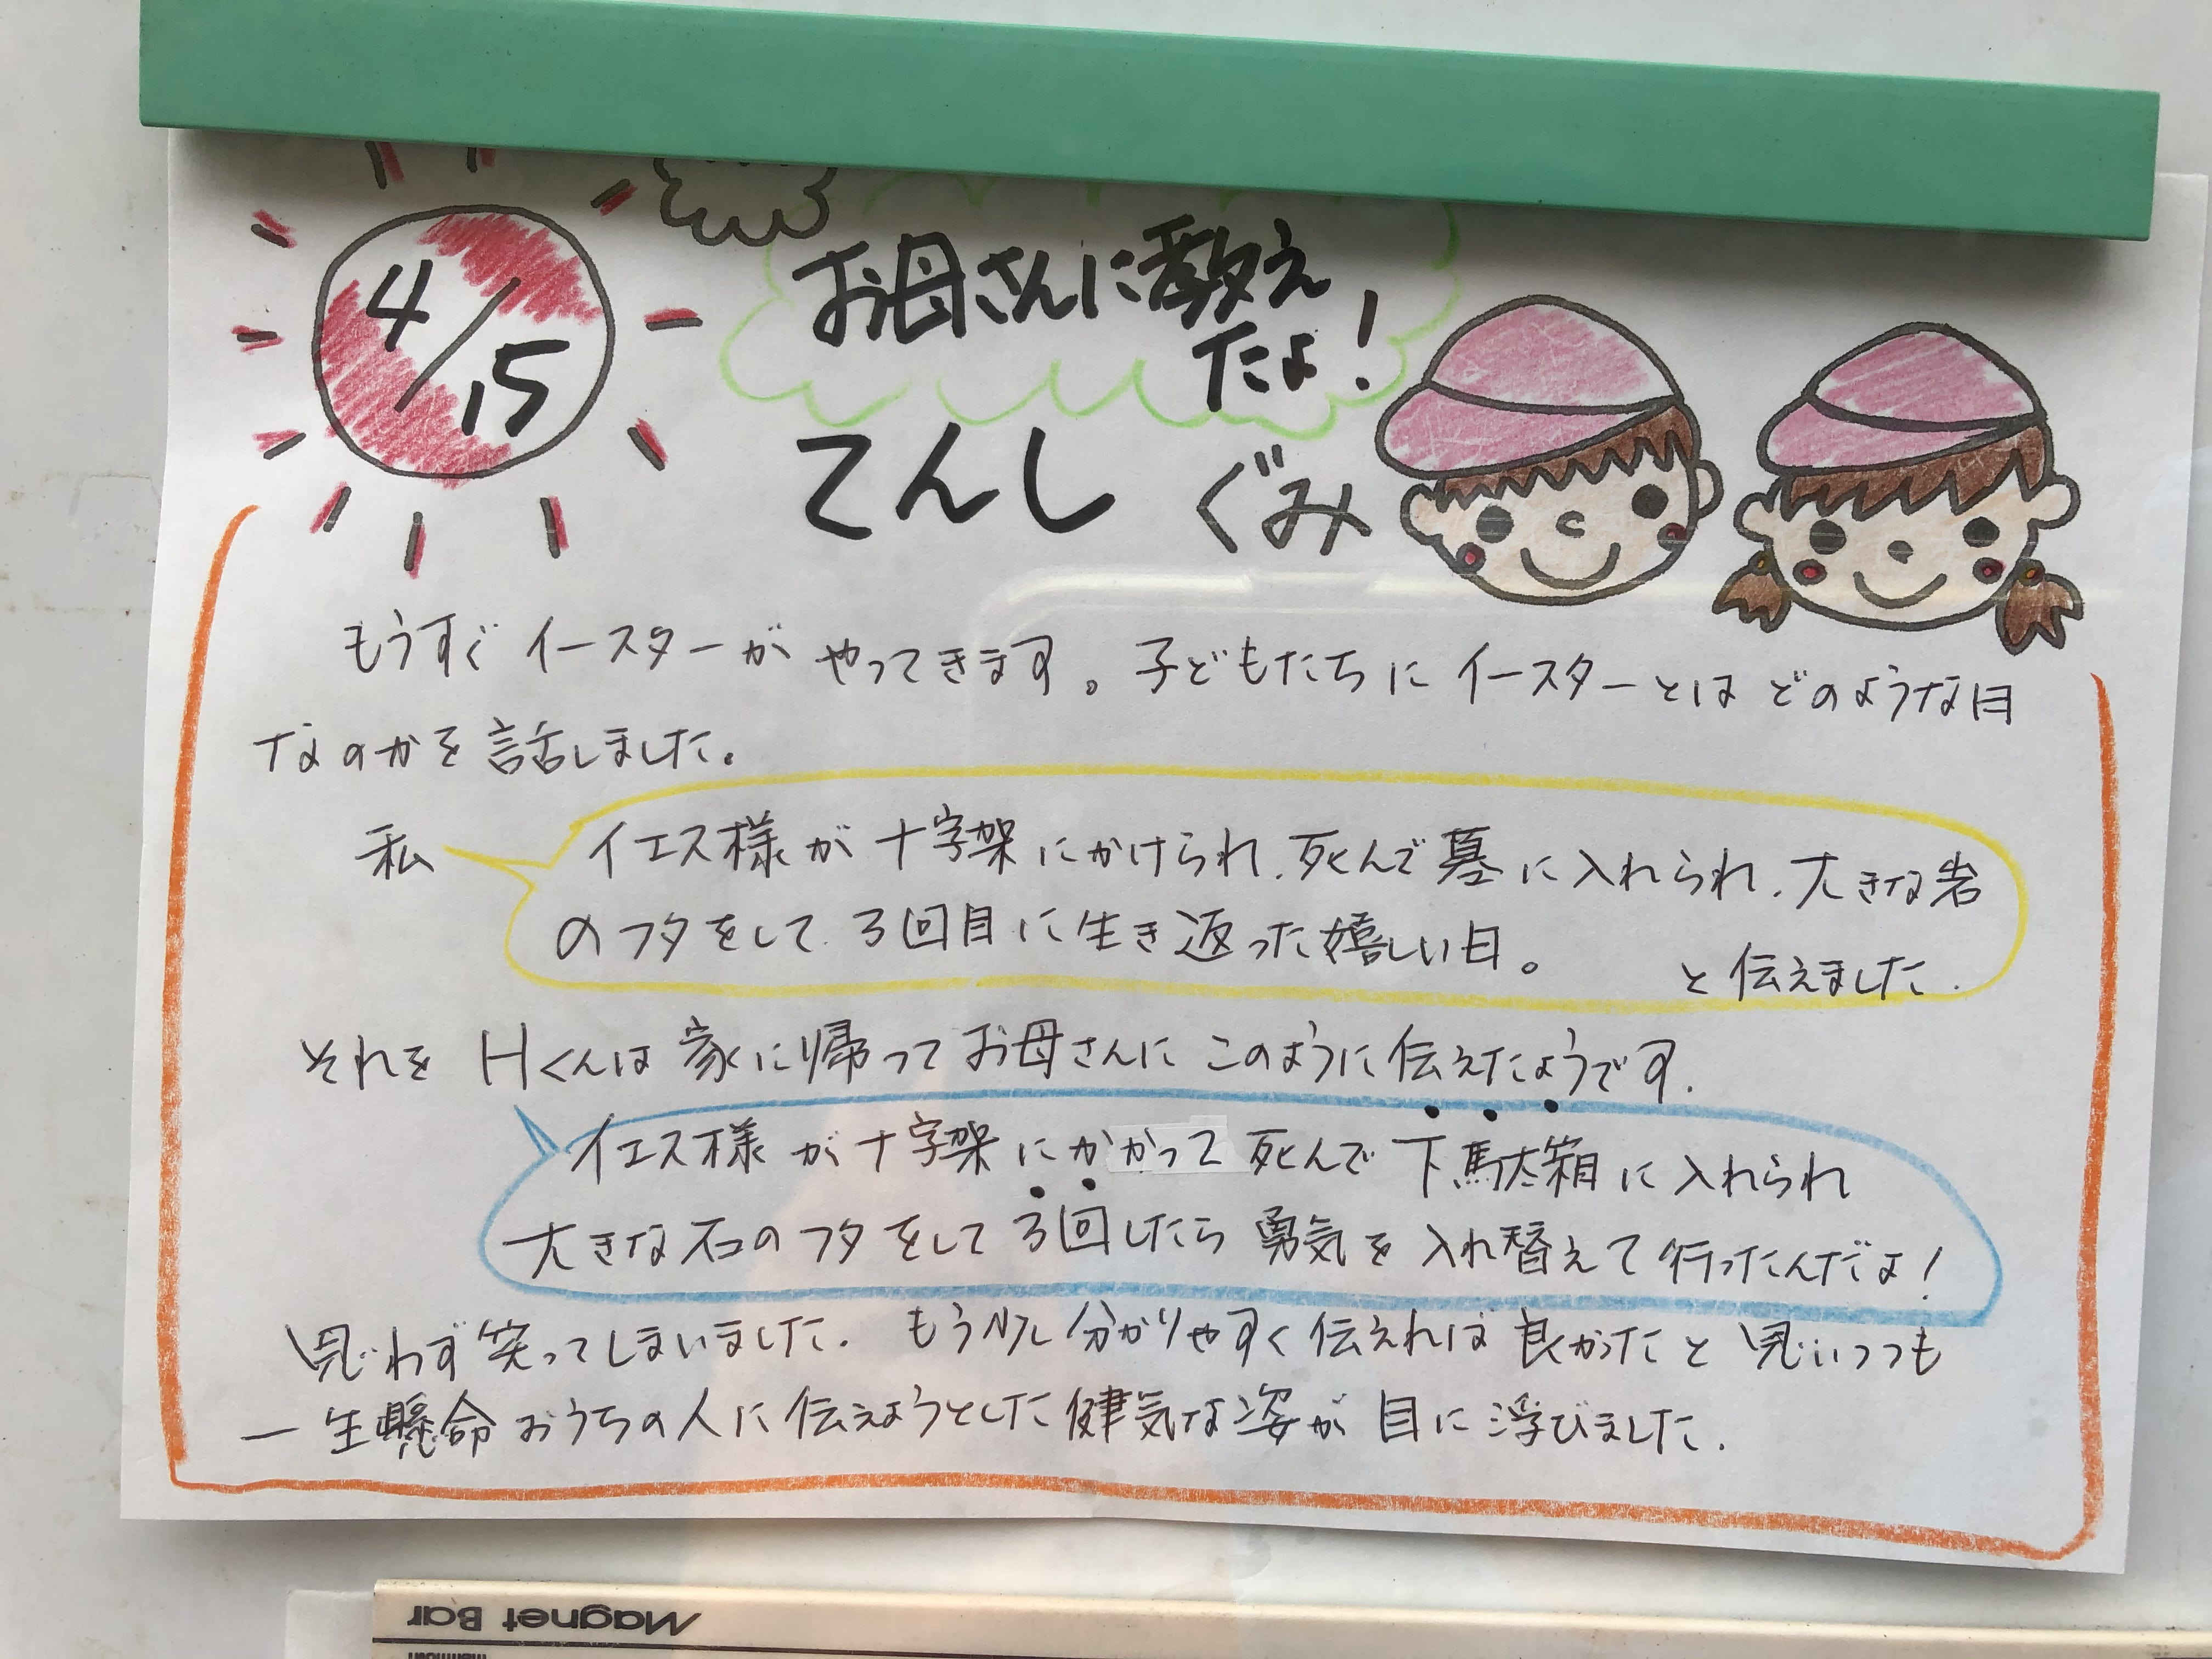 4/15
お母さんに教え
たよ!
てんし ぐみ
もうすぐイースターがやってきます。子どもたちにイースターとはどのような日
なのかを話しました。
私
イエス様が十字架にかけられ、死んで墓に入れられ、大きな岩
のフタをして、3回目に生き返った嬉しい日。 と伝えました.
それをHくんは家に帰ってお母さんにこのように伝えたようです.
イエス様が十字架にかかって死んで下駄箱に入れられ
大きな石のフタをして3回したら勇気を入れ替えて行ったんだよ!
思わず笑ってしまいました.もう少し分かりやすく伝えれば良かったと思いつつも
一生懸命おうちの人に伝えようとした健気な姿が目に浮びました.
Magnet Bar